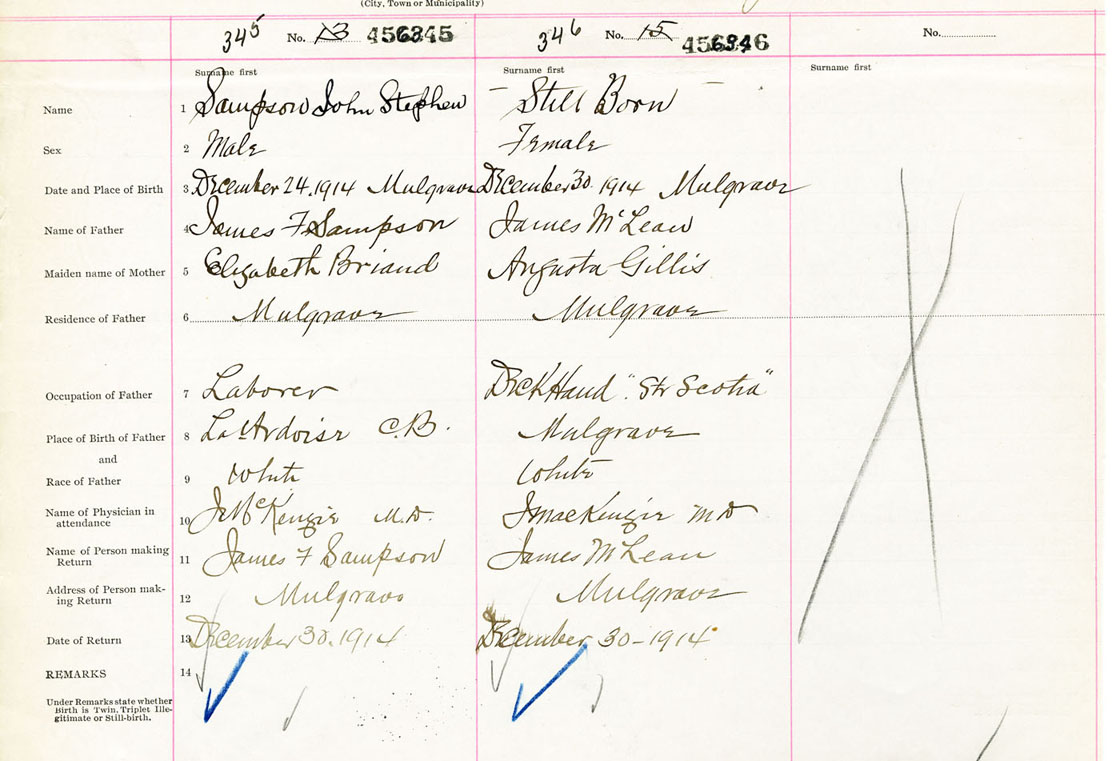 (City, Town or Municipality)
345 No. 13 456345 346 No. 15 456346 No.
Surname first Surname first Surname first
Name 1 Sampson John Stephen – Still Born –
Sex 2 Male Female
Date and Place of Birth 3 December 24. 1914 Mulgrave December 30. 1914 Mulgrave
Name of Father 4 James F Sampson James McLean
Maiden name of Mother 5 Elizabeth Briand Augusta Gillis
Residence of Father 6 Mulgrave Mulgrave
Occupation of Father 7 Laborer Deck Hand "Str Scotia"
Place of Birth of Father 8 L'Ardoise C.B. Mulgrave
and
Race of Father 9 White White
Name of Physician in
attendance 10 J McKenzie M.D. J MacKenzie M D
Name of Person making
Return 11 James F Sampson James McLean
Address of Person mak-
ing Return 12 Mulgrave Mulgrave
Date of Return 13 December 30. 1914 December 30 – 1914
REMARKS 14
Under Remarks state whether
Birth is Twin, Triplet Ille-
gitimate or Still-birth.